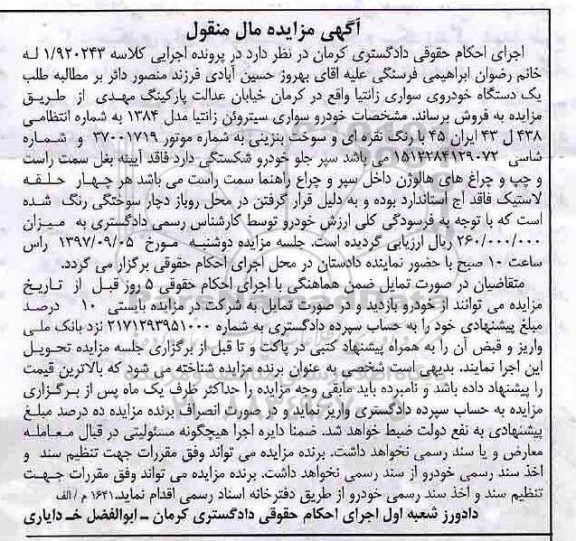 آگهی مزایده مال منقول
اجرای احکام حقوقی دادگستری کرمان در نظر دارد در پرونده اجرایی کلاسه ۱/۹۲۰۲۴۳ له
خانم رضوان ابراهیمی فرسنگی علیه اقای بهروز حسین آبادی فرزند منصور دائر بر مطالبه طلب
یک دستگاه خودروی سواری زانتیا واقع در کرمان خیابان عدالت پارکینگ مهدی از طریق
مزایده به فروش برساند. مشخصات خودرو سواری سیتروئن زانتیا مدل ۱۳۸۴ به شماره انتظامی
۴۳۸ ل ۴۳ ایران ۴۵ با رنگ نقره ای و سوخت بنزینی به شماره موتور ۳۷۰۰۱۷۱۹ و شماره
شاسی ۱۵۱۲۲۸۴۱۲۹۰۷۲ می باشد سپر جلو خودرو شکستگی دارد فاقد آیینه بغل سمت راست
و چپ و چراغ های هالوژن داخل سپر و چراغ راهنما سمت راست می باشد هر چهار حلقه
لاستیک فاقد آج استاندارد بوده و به دلیل قرار گرفتن در محل روباز دچار سوختگی رنگ شده
است که با توجه به فرسودگی کلی ارزش خودرو توسط کارشناس رسمی دادگستری به میزان
۲۶۰/۰۰۰/۰۰۰ ریال ارزیابی گردیده است. جلسه مزایده دوشنبه مورخ ۱۳۹۷/۰۹/۰۵ راس
ساعت ۱۰ صبح با حضور نماینده دادستان در محل اجرای احکام حقوقی برگزار می گردد.
متقاضیان در صورت تمایل ضمن هماهنگی با اجرای احکام حقوقی ۵ روز قبل از تاریخ
مزایده می توانند از خودرو بازدید و در صورت تمایل به شرکت در مزایده بایستی ۱۰ درصد
مبلغ پیشنهادی خود را به حساب سپرده دادگستری به شماره ۲۱۷۱۲۹۳۹۵۱۰۰۰ نزد بانک ملی
واریز و قبض آن را به همراه پیشنهاد کتبی در پاکت و تا قبل از برگزاری جلسه مزایده تحویل
این اجرا نمایند. بدیهی است شخصی به عنوان برنده مزایده شناخته می شود که بالاترین قیمت
را پیشنهاد داده باشد و نامبرده باید مابقی وجه مزایده را حداکثر ظرف یک ماه پس از برگزاری
مزایده به حساب سپرده دادگستری واریز نماید و در صورت انصراف برنده مزایده ده درصد مبلغ
پیشنهادی به نفع دولت ضبط خواهد شد. ضمنا دایره اجرا هیچگونه مسئولیتی در قبال معامله
معارض و یا سند رسمی نخواهد داشت. برنده مزایده می تواند وفق مقررات جهت تنظیم سند و
اخذ سند رسمی خودرو از سند رسمی نخواهد داشت. برنده مزایده می تواند وفق مقررات جهت
تنظیم سند و اخذ سند رسمی خودرو از طریق دفترخانه اسناد رسمی اقدام نماید.۱۶۴۱ م / الف
دادورز شعبه اول اجرای احکام حقوقی دادگستری کرمان ـ ابوالفضل خدایاری